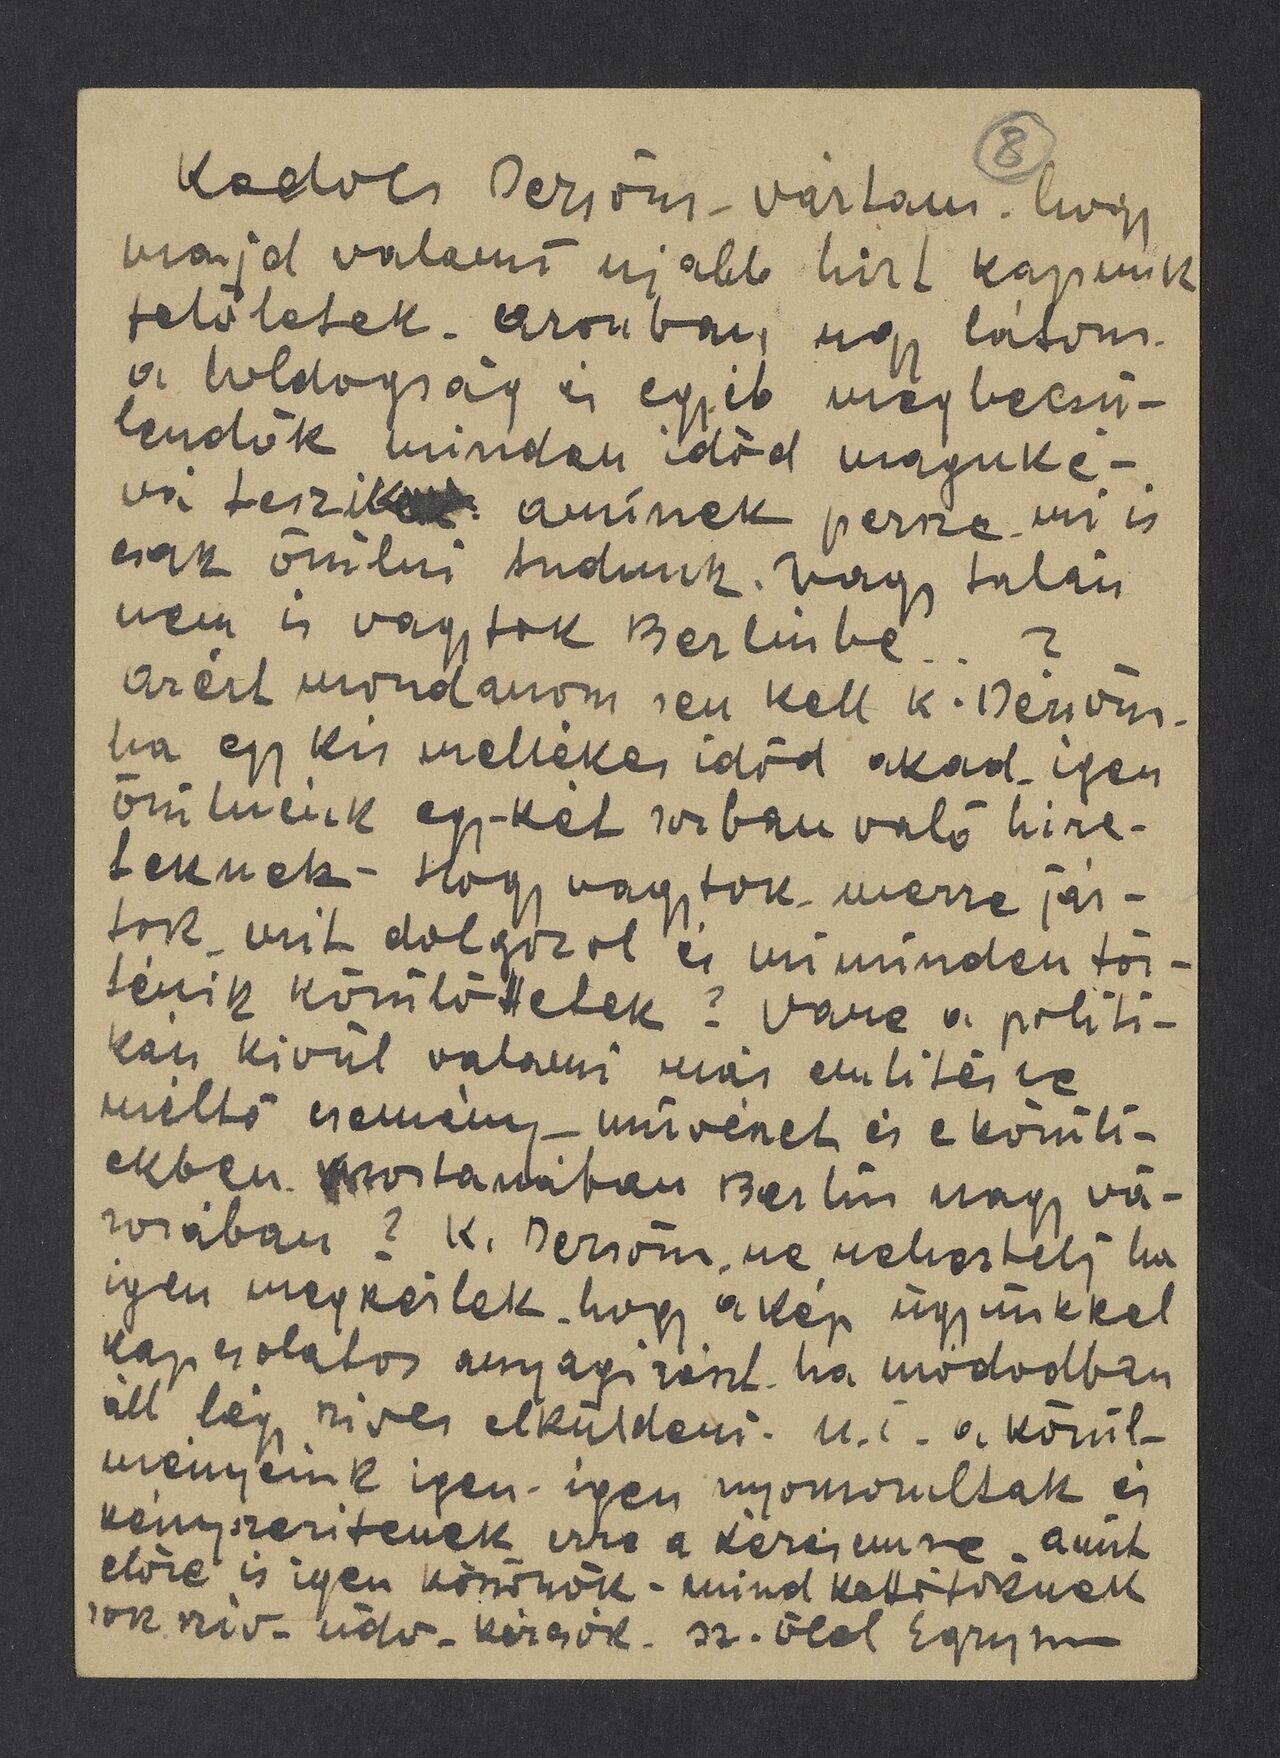 8
Kedves Dezsőm - vártam - hogy
majd valami ujabb hirt kapunk
felőletek - azonban, ugy látom -
a boldogság és egyéb megbecsü-
lendők minden időd maguké-
vá teszik. aminek persze - mi is
csak örülni tudunk. Vagy talán
nem is vagytok Berlinbe .. ?
azért mondanom sem kell K. Dezsőm -
ha egy kis mellékes időd akad - igen
örülnénk egy-két sorban való hire-
teknek - Hogy vagytok - merre jár-
tok - mit dolgozol és mi minden tör-
ténik körülöttetek ? Vane a politi-
kán kivül valami más emlitésre
méltó esemény - müvészet és e körüli-
ekben - mostanában Berlin nagy vá-
rosában ? K. Dezsőm, ne neheztelj ha
igen megkérlek - hogy a kép ügyünkkel
kapcsolatos anyagi részt - ha módodban
áll légy szives elküldeni - u.i. - a körül-
ményeink igen - igen nyomorultak és
kényszeritenek erre a kérésemre - amit
előre is igen köszönök - mind kettőtöknek
sok sziv - üdv - kézcsók - sz. ölel Egry